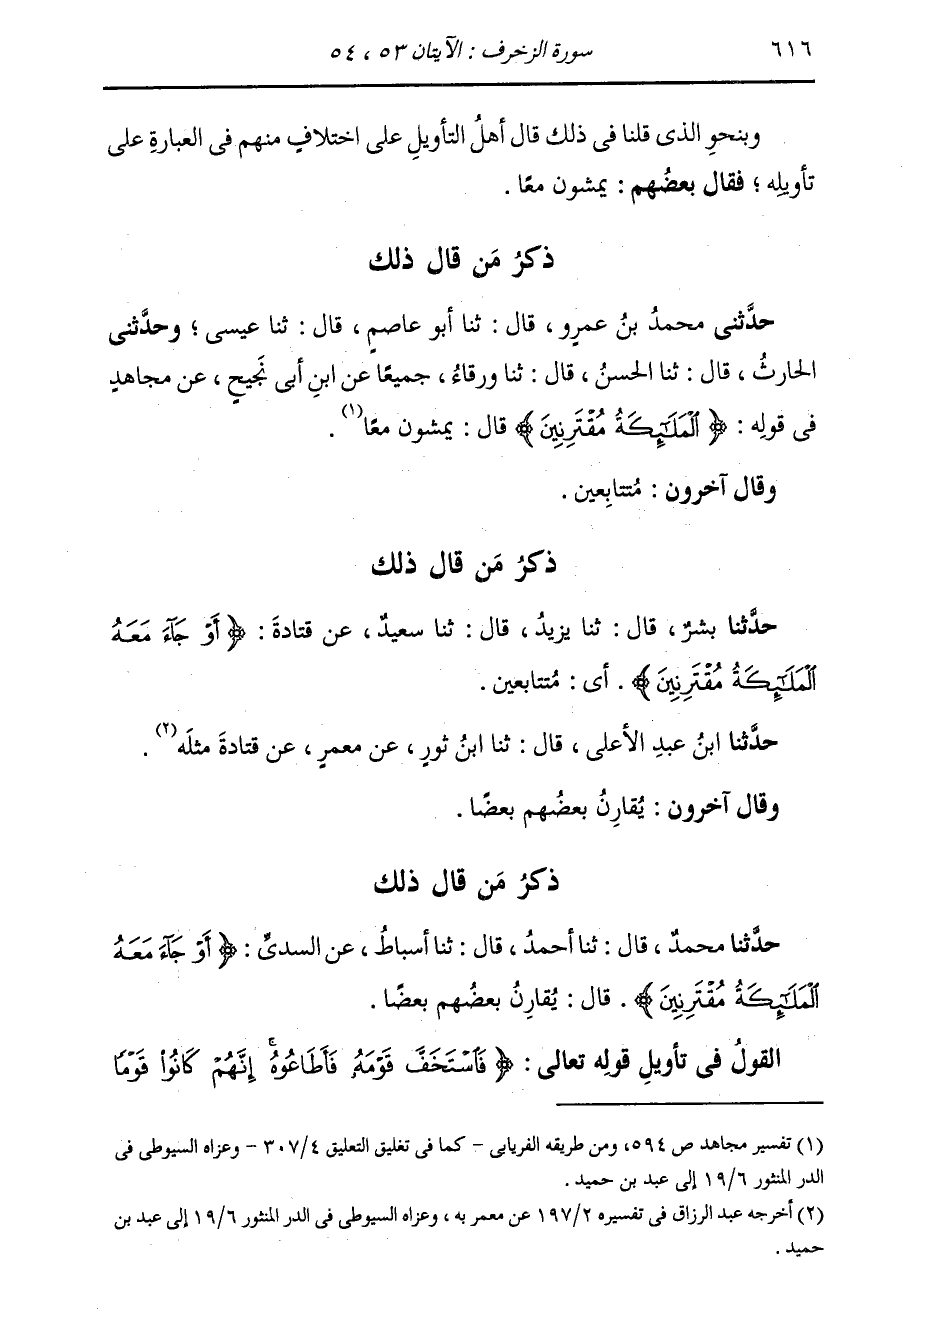 ٦١٦ سورة الزخرف : الآيتان ٥٣ ، ٥٤
وبنحوِ الذى قلنا فى ذلك قال أهلُ التأويلِ على اختلافٍ منهم فى العبارةِ على
تأويلِه ؛ فقال بعضُهم : يمشون معًا .
ذكرُ مَن قال ذلك
حدَّثنى محمدُ بنُ عمرٍو ، قال : ثنا أبو عاصمٍ ، قال : ثنا عيسى ؛ وحدَّثنى
الحارثُ ، قال : ثنا الحسنُ ، قال : ثنا ورقاءُ ، جميعًا عن ابنِ أبى نَجيحٍ ، عن مجاهدٍ
فى قولِه : ﴿ ٱلْمَلَٰٓئِكَةُ مُقْتَرِنِينَ ﴾ قال : يمشون معًا(١) .
وقال آخرون : مُتتابِعين .
ذكرُ مَن قال ذلك
حدَّثنا بشرٌ ، قال : ثنا يزيدُ ، قال : ثنا سعيدٌ ، عن قتادةَ : ﴿ أَوْ جَآءَ مَعَهُ
ٱلْمَلَٰٓئِكَةُ مُقْتَرِنِينَ ﴾ . أى : مُتتابعين .
حدَّثنا ابنُ عبدِ الأعلى ، قال : ثنا ابنُ ثورٍ ، عن معمرٍ ، عن قتادةَ مثلَه(٢) .
وقال آخرون : يُقارِنُ بعضُهم بعضًا .
ذكرُ مَن قال ذلك
حدَّثنا محمدٌ ، قال : ثنا أحمدُ ، قال : ثنا أسباطُ ، عن السدىِّ : ﴿ أَوْ جَآءَ مَعَهُ
ٱلْمَلَٰٓئِكَةُ مُقْتَرِنِينَ ﴾ . قال : يُقارِنُ بعضُهم بعضًا .
القولُ فى تأويلِ قولِه تعالى : ﴿ فَٱسْتَخَفَّ قَوْمَهُۥ فَأَطَاعُوهُ ۚ إِنَّهُمْ كَانُوا۟ قَوْمًا
(١) تفسير مجاهد ص ٥٩٤، ومن طريقه الفريابى - كما فى تغليق التعليق ٣٠٧/٤ - وعزاه السيوطى فى
الدر المنثور ١٩/٦ إلى عبد بن حميد .
(٢) أخرجه عبد الرزاق فى تفسيره ١٩٧/٢ عن معمر به ، وعزاه السيوطى فى الدر المنثور ١٩/٦ إلى عبد بن
حميد .